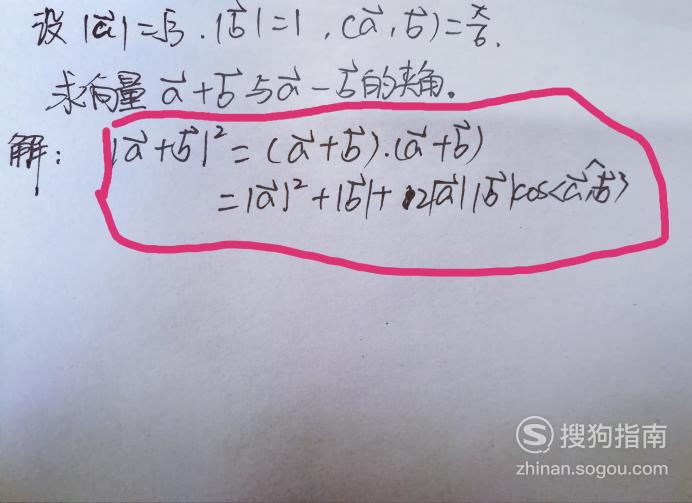 设 |a⃗|=√3 . |b⃗|=1 , (a⃗,b⃗)=π/6.
求向量 a⃗+b⃗ 与 a⃗-b⃗ 的夹角。
解: |a⃗+b⃗|² = (a⃗+b⃗).(a⃗+b⃗)
=|a⃗|²+|b⃗|+2|a⃗||b⃗|cos<a⃗,b⃗>
搜狗指南
zhinan.sogou.com